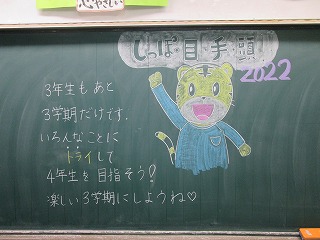 心やさしい
しっぽ 目 手 頭
2022
3年生も あと
3学期だけです。
いろんなことに
トライして
4年生を 目指そう!
楽しい3学期にしようね♡